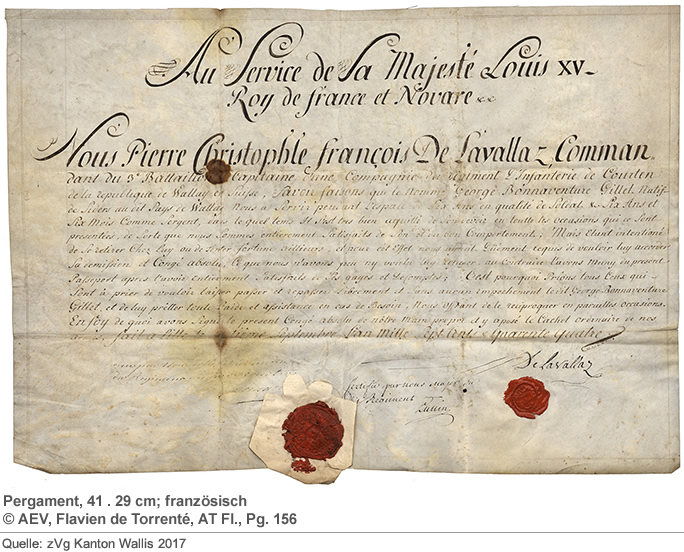 Au Service de Sa Majesté Louis XV
Roy de france et Novare
Nous Pierre Christophle françois De Lavallaz Comman
dant du 3e Battaillon Capitaine d'une Compagnie du Regiment d'Infanterie de Courten
de la republique de Wallay en Suisse Savoir faisons que le Nommé George Bonnaventure Gillet Natif
de au dit Pays de Wallay Nous a Servis pendant l'espace Six ans en qualité de Soldat & Six Ans et
Six Mois Comme Sergent, dans lequel tems il s'est tres bien aquitté de Son devoir en toutes les occasions qui se Sont
presentées de Sorte que Nous Sommes entierement Satisfaits de Son Comportement; Mais étant intentioné
de Se Retirer Chez Luy ou de fortune ailleurs, et pour cet effet nous ayant Dûement requis de vouloir luy accorder
Sa demission et Congé absolut, Ce que nous n'avons pas voulu luy refuser au contraire l'avons Muny du present
Passeport après l'avoir entierement Satisfait de Ses gages et C'est pourquoi Prions tous Ceux qui
Sont à prier de vouloir laisser passer et repasser librement et Sans aucun empechement ledit George Bonnaventure
Gillet, et de luy pretter toute l'aide et assistance en cas de Besoin, Nous offrant de le reciproquer en pareilles occasions.
En foy de quoi avons Signé le present Congé absolut de nôtre Main propre et y apposé le Cachet ordinaire de nos
armes, fait a Septembre, l'an Mille Sept Cent & Quarente quatre
De Lavallaz
Certifié par nous Major du
dit Regiment
Pergament, 41 . 29 cm; französisch
© AEV, Flavien de Torrenté, AT Fl., Pg. 156
Quelle: zVg Kanton Wallis 2017